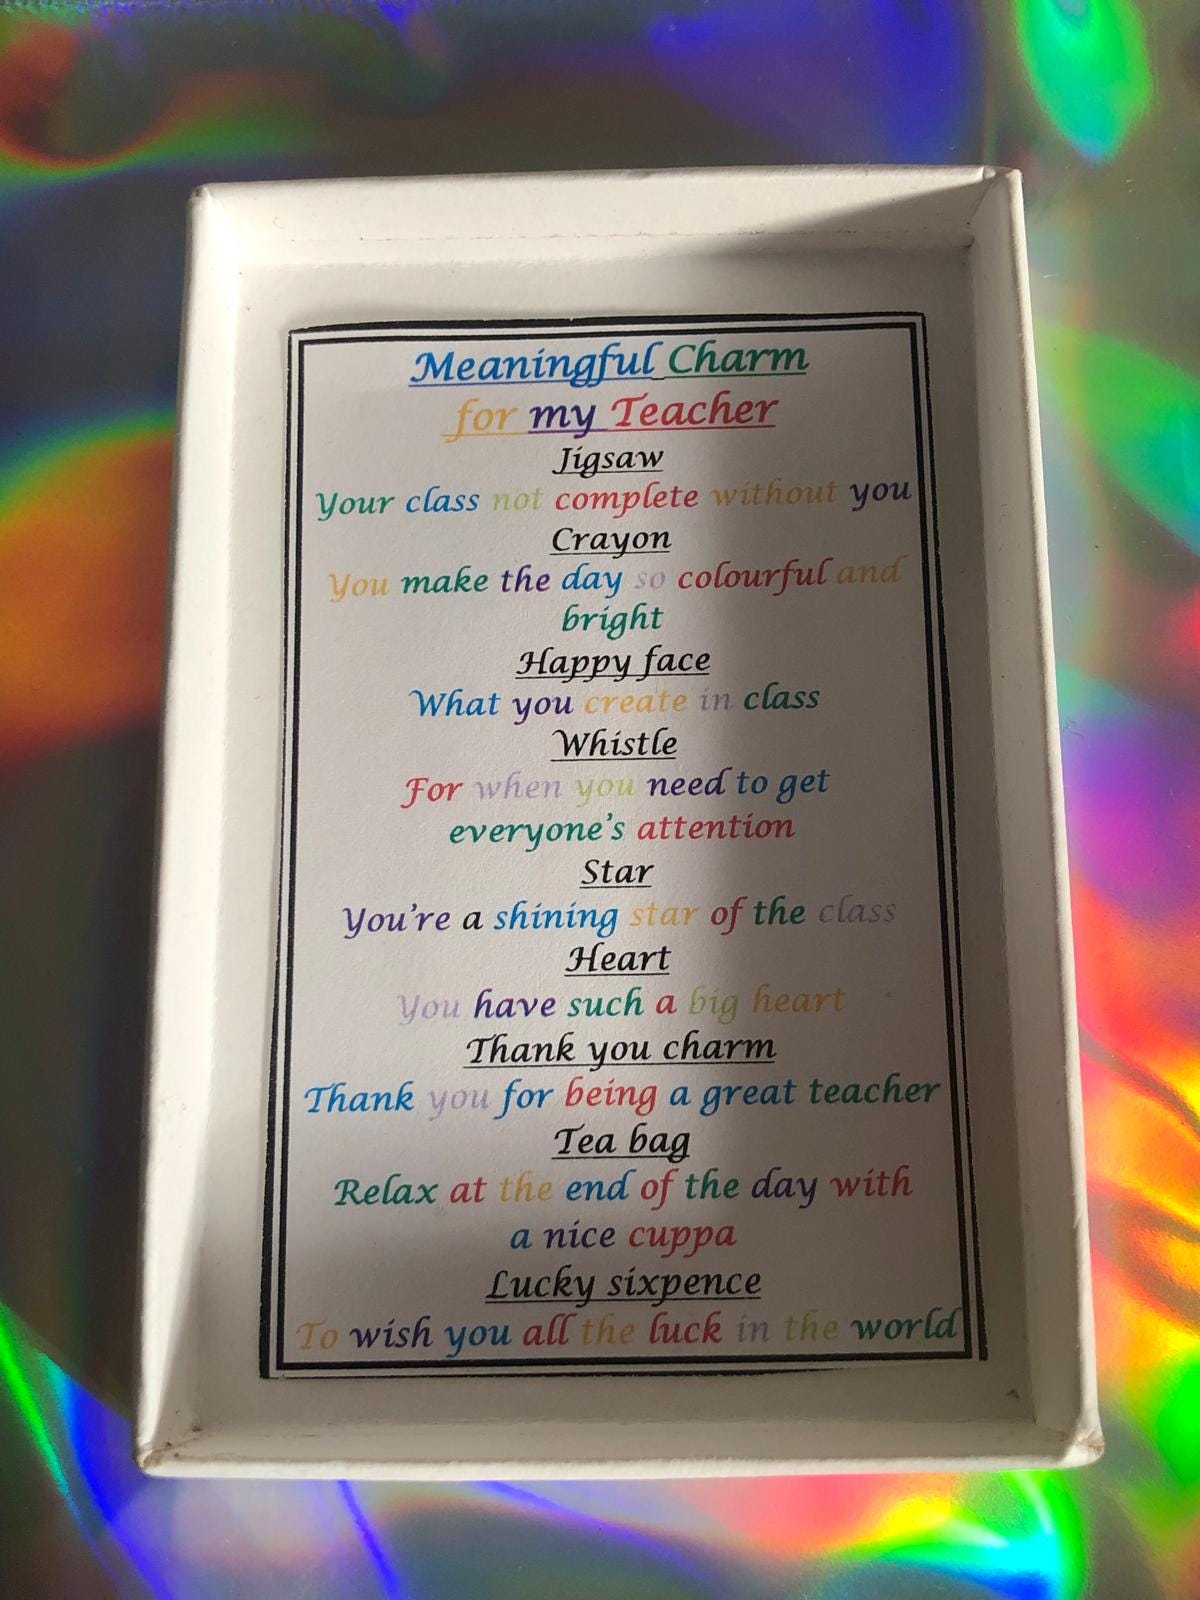 Meaningful Charm
for my Teacher
Jigsaw
Your class not complete without you
Crayon
You make the day so colourful and
bright
Happy face
What you create in class
Whistle
For when you need to get
everyone's attention
Star
You're a shining star of the class
Heart
You have such a big heart
Thank you charm
Thank you for being a great teacher
Tea bag
Relax at the end of the day with
a nice cuppa
Lucky sixpence
To wish you all the luck in the world